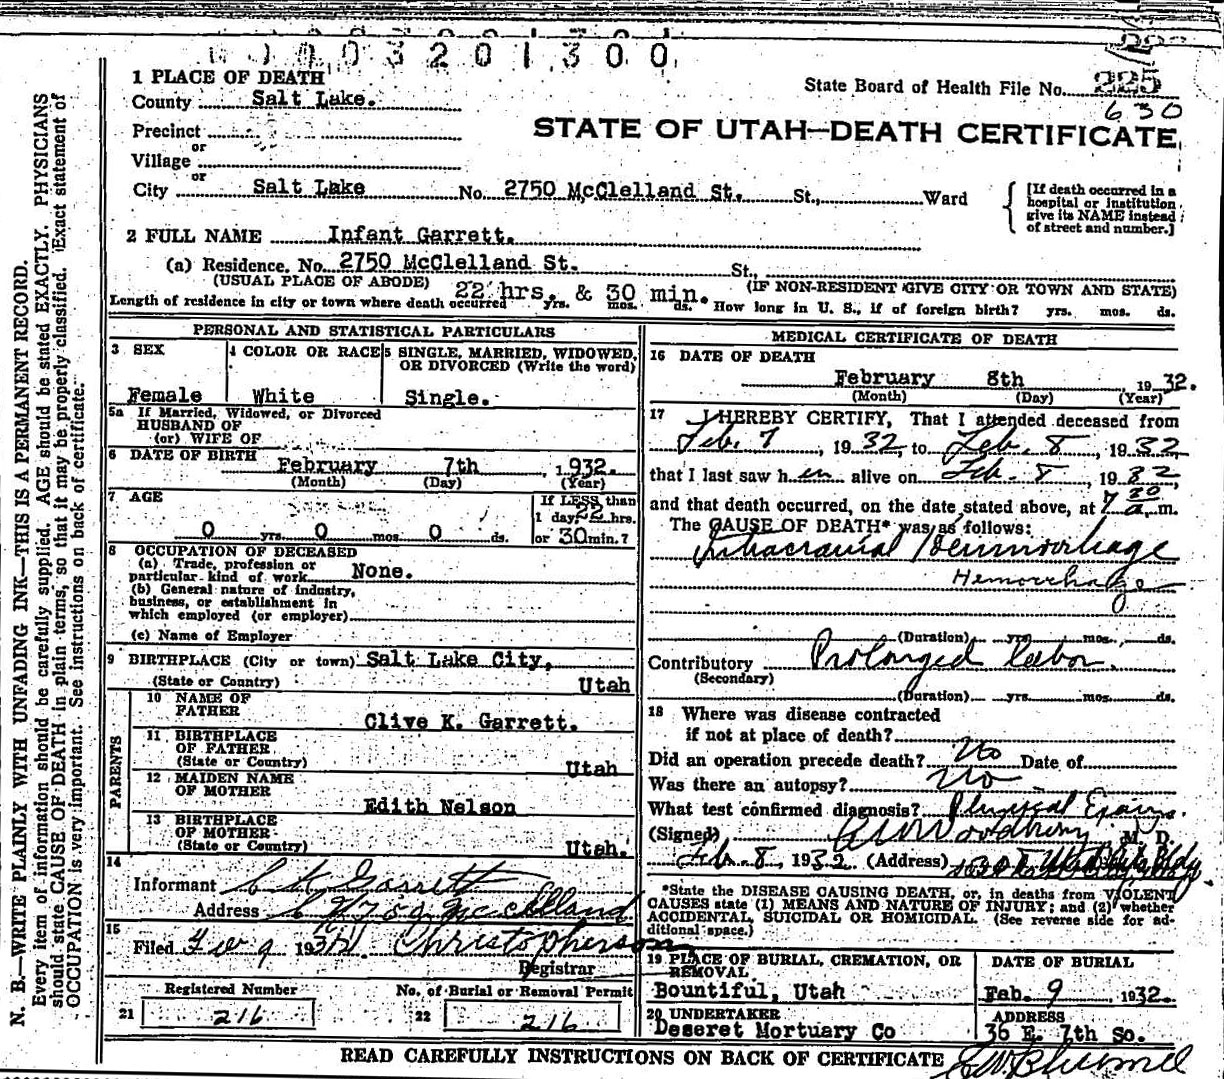 0 3 2 0 1 3 0 0
1 PLACE OF DEATH
State Board of Health File No. 225
County Salt Lake.
630
STATE OF UTAH—DEATH CERTIFICATE
Precinct
or
Village
or
City Salt Lake No. 2750 McClelland St. St., Ward
[If death occurred in a
hospital or institution
give its NAME instead
of street and number.]
2 FULL NAME Infant Garrett.
(a) Residence. No. 2750 McClelland St. St.,
(USUAL PLACE OF ABODE) (IF NON-RESIDENT GIVE CITY OR TOWN AND STATE)
22 hrs. & 30 min.
Length of residence in city or town where death occurred yrs. mos. ds. How long in U. S., if of foreign birth? yrs. mos. ds.
PERSONAL AND STATISTICAL PARTICULARS
3 SEX
Female
4 COLOR OR RACE
White
5 SINGLE, MARRIED, WIDOWED,
OR DIVORCED (Write the word)
Single.
5a If Married, Widowed, or Divorced
HUSBAND OF
(or) WIFE OF
6 DATE OF BIRTH
February 7th 1932.
(Month) (Day) (Year)
7 AGE
0 yrs. 0 mos. 0 ds.
If LESS than
1 day, 22 hrs.
or 30 min.?
8 OCCUPATION OF DECEASED
(a) Trade, profession or
particular kind of work None.
(b) General nature of industry,
business, or establishment in
which employed (or employer)
(c) Name of Employer
9 BIRTHPLACE (City or town) Salt Lake City,
(State or Country) Utah
PARENTS
10 NAME OF
FATHER
Clive K. Garrett.
11 BIRTHPLACE
OF FATHER
(State or Country) Utah
12 MAIDEN NAME
OF MOTHER
Edith Nelson
13 BIRTHPLACE
OF MOTHER
(State or Country) Utah.
14
Informant C. K. Garrett
Address McClelland
15
Filed Feb 9 1932 Christopherson
Registrar
Registered Number
21 216
No. of Burial or Removal Permit
22 216
MEDICAL CERTIFICATE OF DEATH
16 DATE OF DEATH
February 8th, 1932.
(Month) (Day) (Year)
17 I HEREBY CERTIFY, That I attended deceased from
Feb. 7, 1932, to Feb. 8, 1932
that I last saw her alive on Feb. 8, 1932,
and that death occurred, on the date stated above, at 7 30 a. m.
The CAUSE OF DEATH* was as follows:
Intracranial Hemmorrhage
Hemorrhage
(Duration) yrs. mos. ds.
Contributory Prolonged labor
(Secondary)
(Duration) yrs. mos. ds.
18 Where was disease contracted
if not at place of death?
Did an operation precede death? No Date of
Was there an autopsy? No
What test confirmed diagnosis? Physical Exam.
(Signed) Woodbury M. D.
Feb. 8 1932 (Address)
*State the DISEASE CAUSING DEATH, or, in deaths from VIOLENT
CAUSES state (1) MEANS AND NATURE OF INJURY; and (2) whether
ACCIDENTAL, SUICIDAL OR HOMICIDAL. (See reverse side for ad-
ditional space.)
19 PLACE OF BURIAL, CREMATION, OR
REMOVAL
Bountiful, Utah
DATE OF BURIAL
Feb. 9, 1932.
20 UNDERTAKER
Deseret Mortuary Co
ADDRESS
36 E. 7th So.
READ CAREFULLY INSTRUCTIONS ON BACK OF CERTIFICATE
N. B.—WRITE PLAINLY WITH UNFADING INK—THIS IS A PERMANENT RECORD.
Every item of information should be carefully supplied. AGE should be stated EXACTLY. PHYSICIANS
should state CAUSE OF DEATH in plain terms, so that it may be properly classified. Exact statement of
OCCUPATION is very important. See instructions on back of certificate.